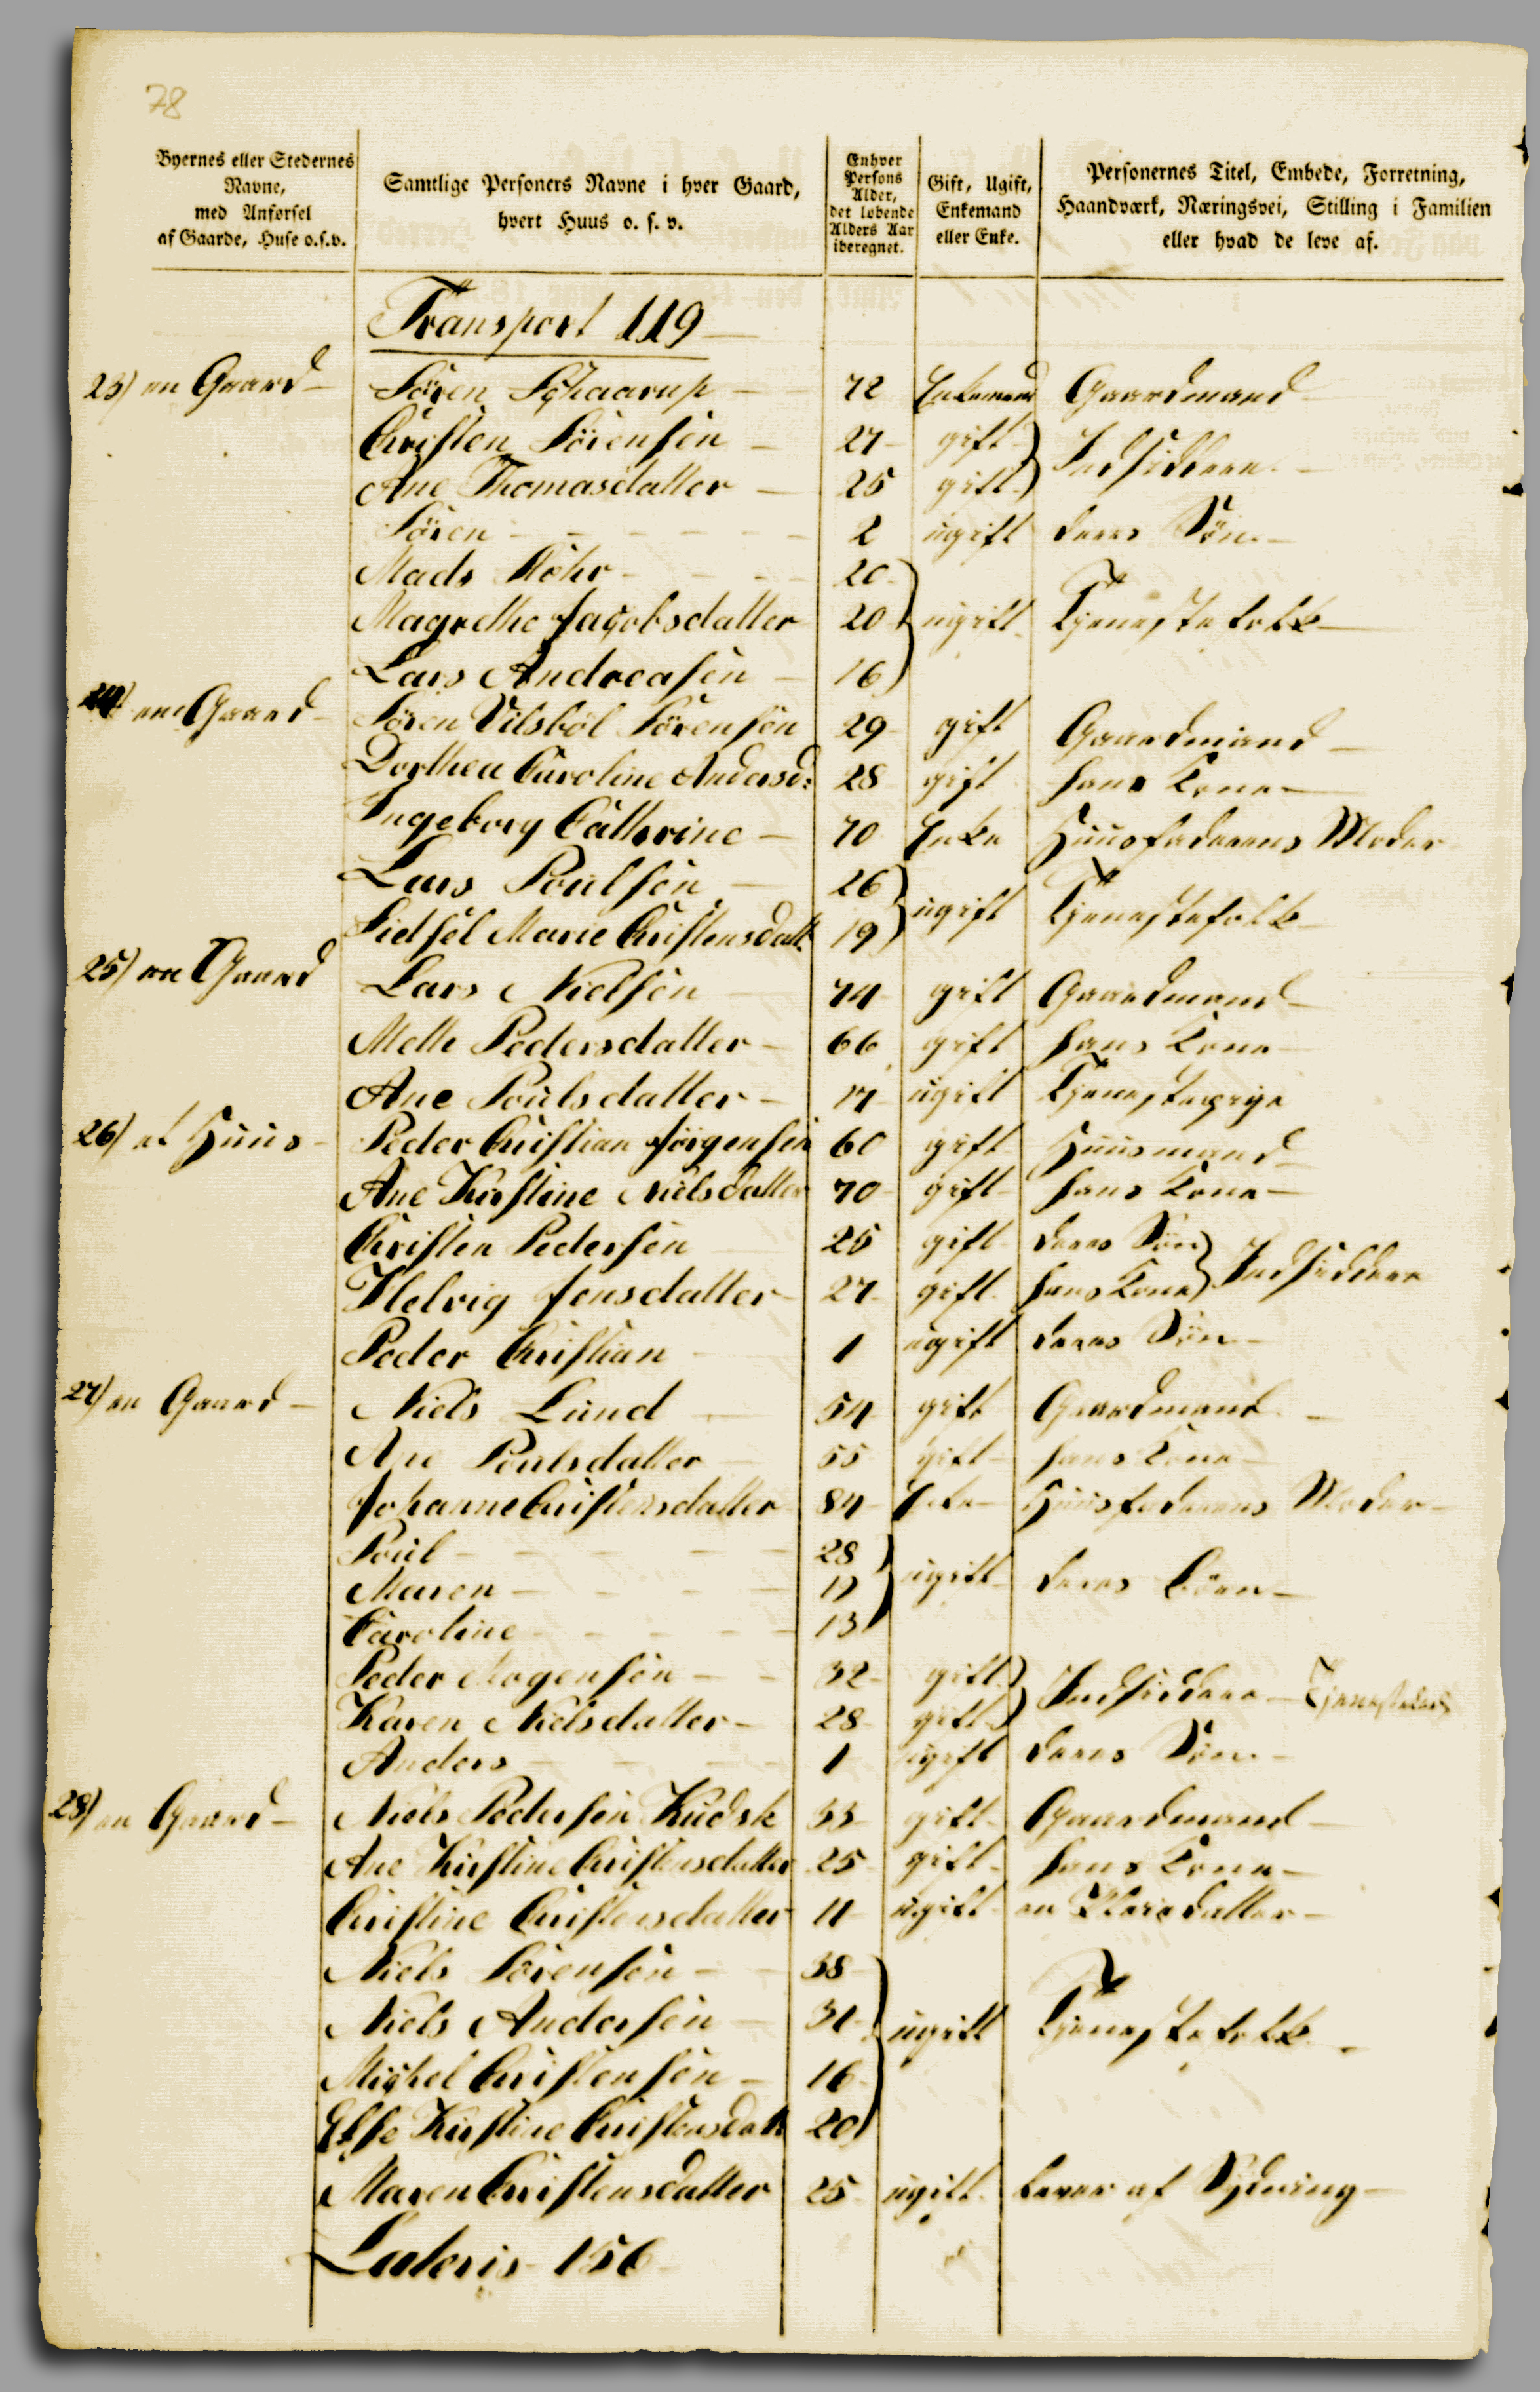 78
Byernes eller Stedernes Navne, med Anførsel af Gaarde, Huse o.s.v.
Samtlige Personers Navne i hver Gaard, hvert Huus o. s. v.
Enhver Persons Alder, det løbende Alders Aar iberegnet.
Gift, Ugift, Enkemand eller Enke.
Personernes Titel, Embede, Forretning, Haandværk, Næringsvei, Stilling i Familien eller hvad de leve af.
Transport 119
23) en Gaard Sören Schaarup 72 Enkemand Gaardmand
Christen Sörensen 27 gift Indsiddere
Ane Thomasdatter 25 gift
Sören 2 ugift deres Sön
Mads Möhr 20
Magrethe Jacobsdatter 20 ugift Tjenestefolk
Lars Andreasen 16
24) en Gaard Sören Vilsböl Sörensen 29 gift Gaardmand
Dorthea Caroline Andersd: 28 gift hans Kone
Ingeborg Cathrine 70 Enke Huusfaderens Moder
Lars Poulsen 26 ugift Tjenestefolk
Sidsel Marie Christensdatt 19
25) en Gaard Lars Nielsen 74 gift Gaardmand
Mette Pedersdatter 66 gift hans Kone
Ane Poulsdatter 17 ugift Tjenestepige
26) et Huus Peder Christian Jörgensen 60 gift Huusmand
Ane Kirstine Nielsdatter 70 gift hans Kone
Christen Pedersen 25 gift deres Sön Indsiddere
Helvig Jensdatter 27 gift hans Kone
Peder Christian 1 ugift deres Sön
27) en Gaard Niels Lund 54 gift Gaardmand
Ane Poulsdatter 55 gift hans Kone
Johanne Christensdatter 84 Enke Huusfaderens Moder
Poul 28
Maren 19 ugift deres Börn
Caroline 13
Peder Mogensen 32 gift Indsiddere
Karen Nielsdatter 28 gift
Anders 1 ugift deres Sön
28) en Gaard Niels Pedersen Kudsk 33 gift Gaardmand
Ane Kirstine Christensdatter 25 gift hans Kone
Christine Christensdatter 11 ugift en Pleiedatter
Niels Sörensen 38
Niels Andersen 31 ugift Tjenestefolk
Michel Christensen 16
Else Kirstine Christensdatt 20
Maren Christensdatter 25 ugift lever af Sydning
Lateris 156